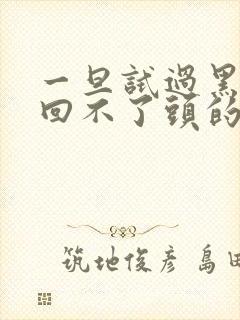 一旦試過黑
回不了頭的
筑地俊彥 島田